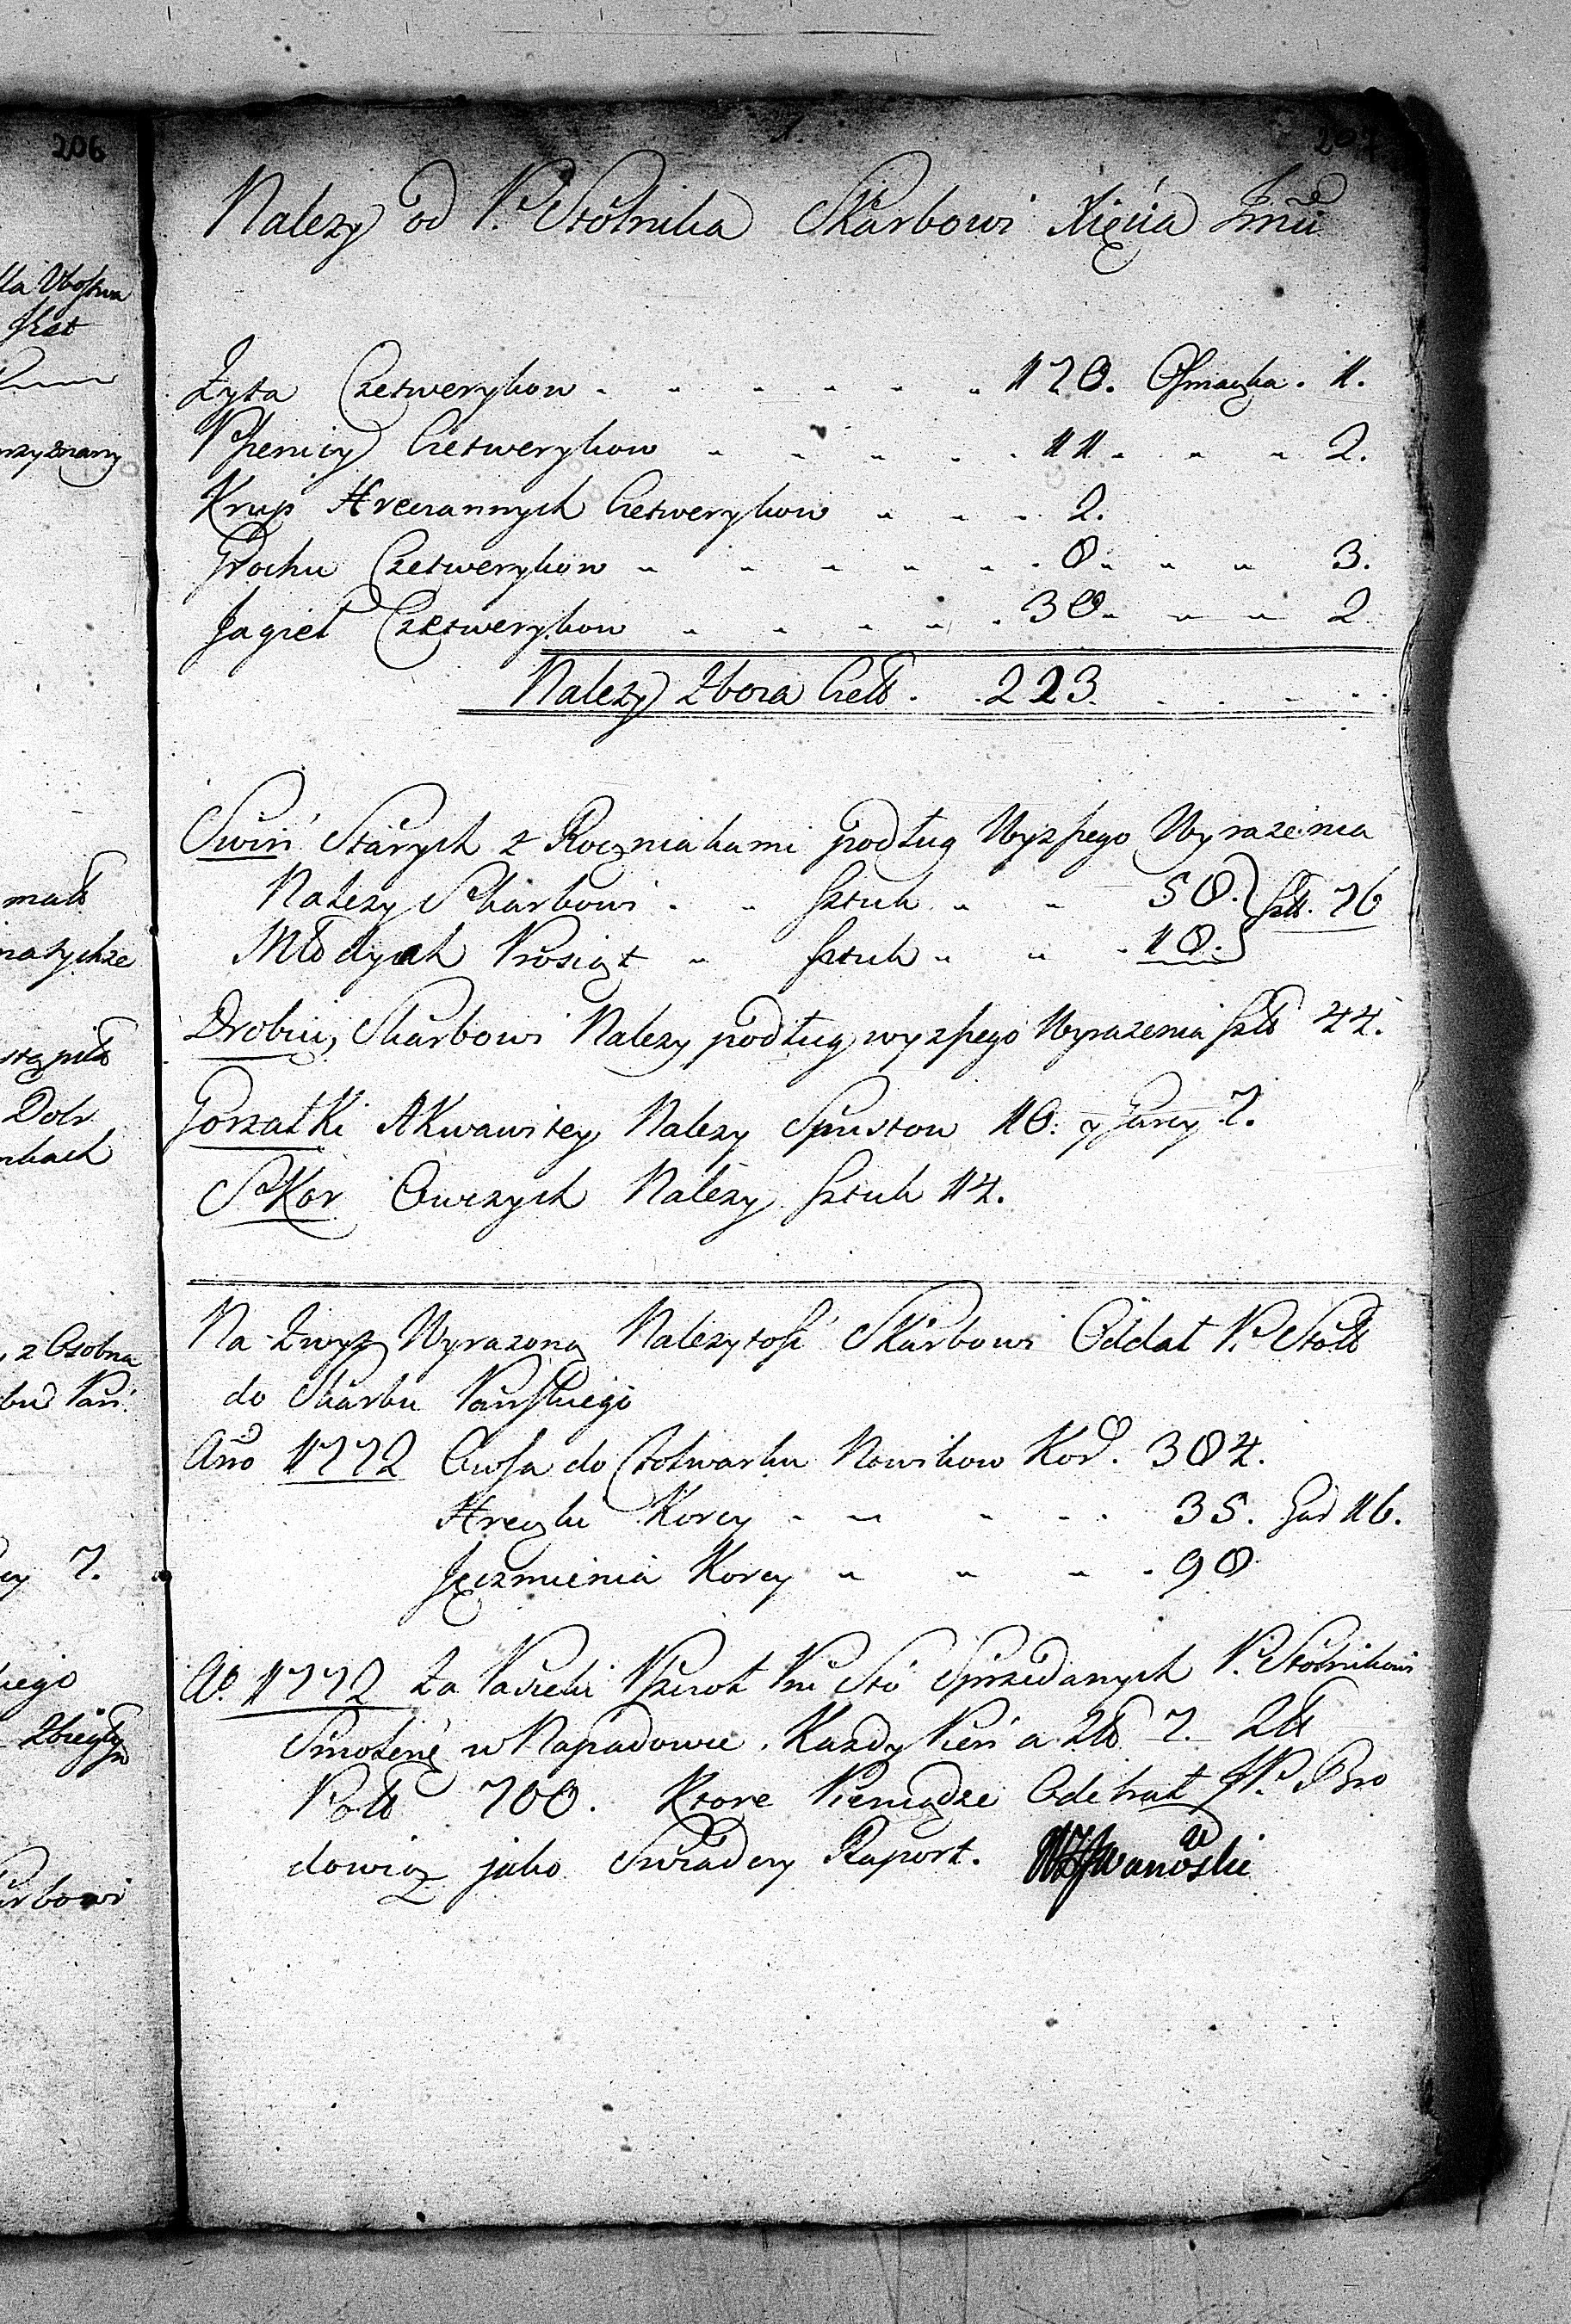 206
207
Nalezy od P. Stolnika Skarbowi Xięcia Jmći
Zyta Czetwerykow . . . . . . . 170. Osmaczka . 1.
Pszenicy Czetwerykow . . . . . 11 . . . 2.
Krup Hreczannych Czetwerykow . . . 2.
Grochu Czetwerykow . . . . . . 8 . . . 3.
Jagieł Czetwerykow . . . . . 30 . . . 2
Nalezy Zboza Czett . . 223. . . . .
Swiń Starych z Roczniakami podług Wyzszego Wyrazenia
Nalezy Skarbowi . . sztuk . . 58. } szt. 76
Młodych Prosiąt . sztuk . . . 18.
Drobiu, Skarbowi Nalezy podług wyzszego Wyrazenia szt 44.
Gorzałki Akwawitey Nalezy Spustow 10. y Garcy 7.
Skor Owczych Nalezy sztuk 14.
Na Zwyz Wyrazoną Nalezytość Skarbowi Oddał P. Stoł
do Skarbu Pańskiego
Ano 1772 Owsa do Folwarku Nowikow Kor. 304.
Hreczki Korcy . . . . . 35. Gar 16.
Jęczmienia Korcy . . . . 90
Ao. 1772 Za Pasieki Pszczoł Pni Sto Sprzedanych P. Stolnikowi
w Napadowie. Kazdy Pień a Zł 7. Złł
Poll 700. Ktore Pieniądze Odebrał JP. Bro
dowicz jako Swiadczy Raport.
7.
Dobr